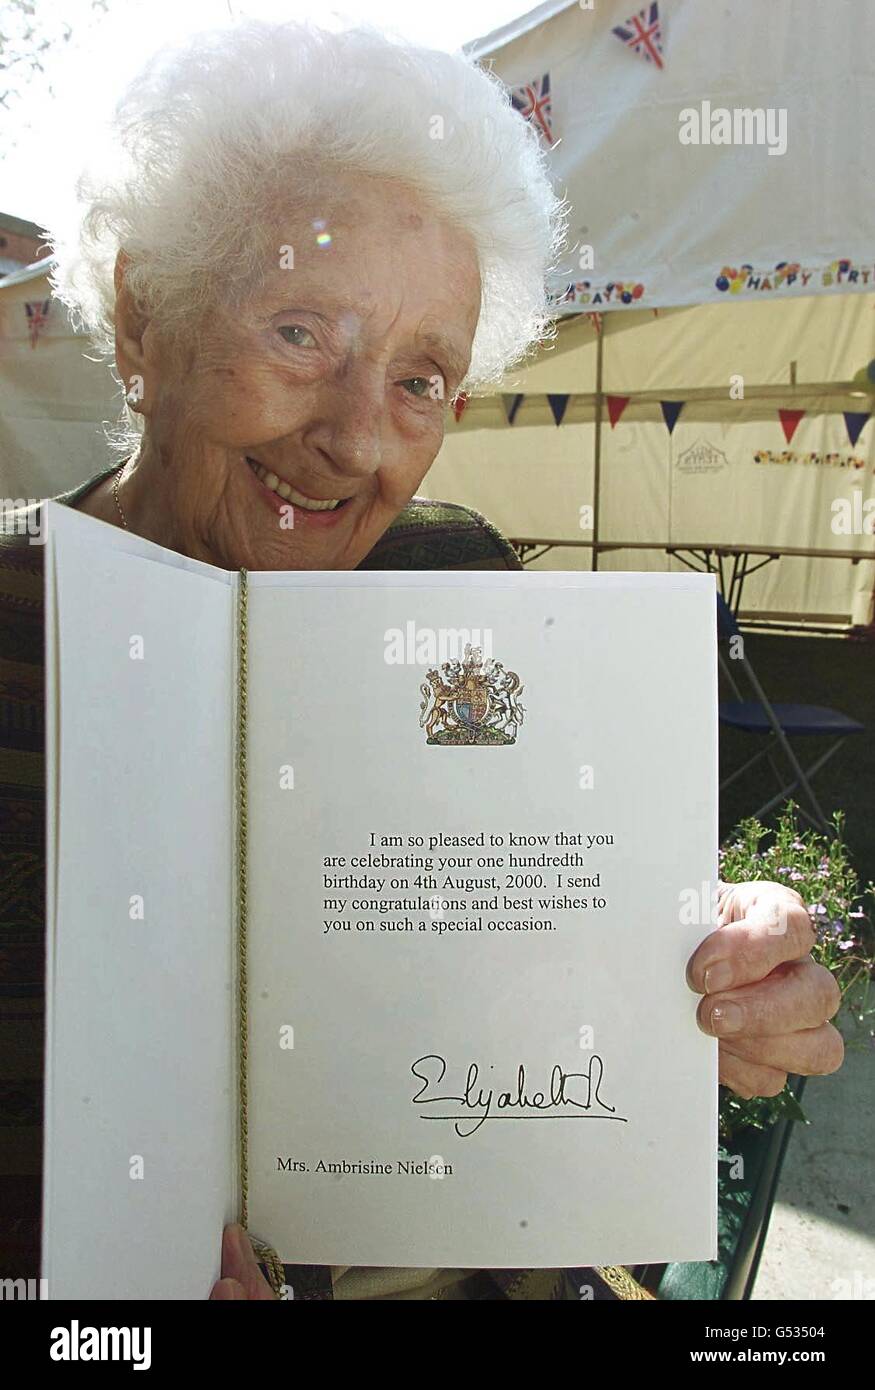 alamy
HAPPY BIRT
HDAY
alamy
I am so pleased to know that you
are celebrating your one hundredth
birthday on 4th August, 2000. I send
my congratulations and best wishes to
you on such a special occasion.
alamy
Elizabeth R
Mrs. Ambrisine Nielsen
alamy
Image ID: G53504
www.alamy.com